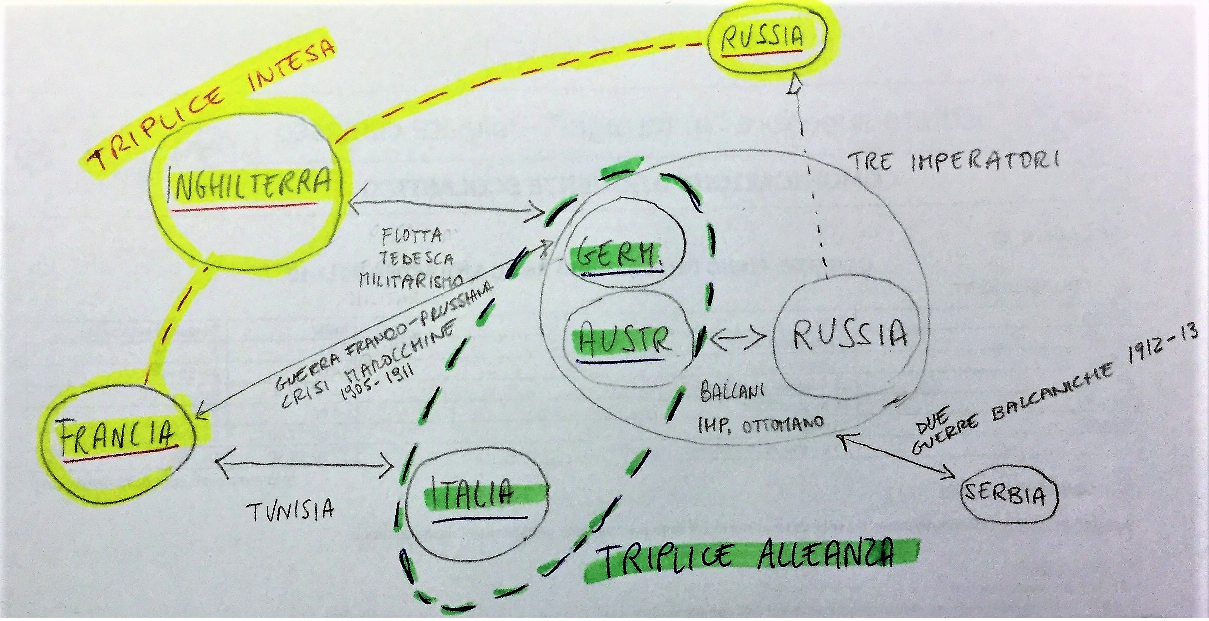 RUSSIA
TRIPLICE INTESA
INGHILTERRA
TRE IMPERATORI
FLOTTA
TEDESCA
MILITARISMO
GERM.
GUERRA FRANCO-PRUSSIANA
CRISI MAROCCHINE
1905-1911
AUSTR
RUSSIA
BALCANI
IMP. OTTOMANO
DUE
GUERRE BALCANICHE 1912-13
FRANCIA
TUNISIA
ITALIA
SERBIA
TRIPLICE ALLEANZA